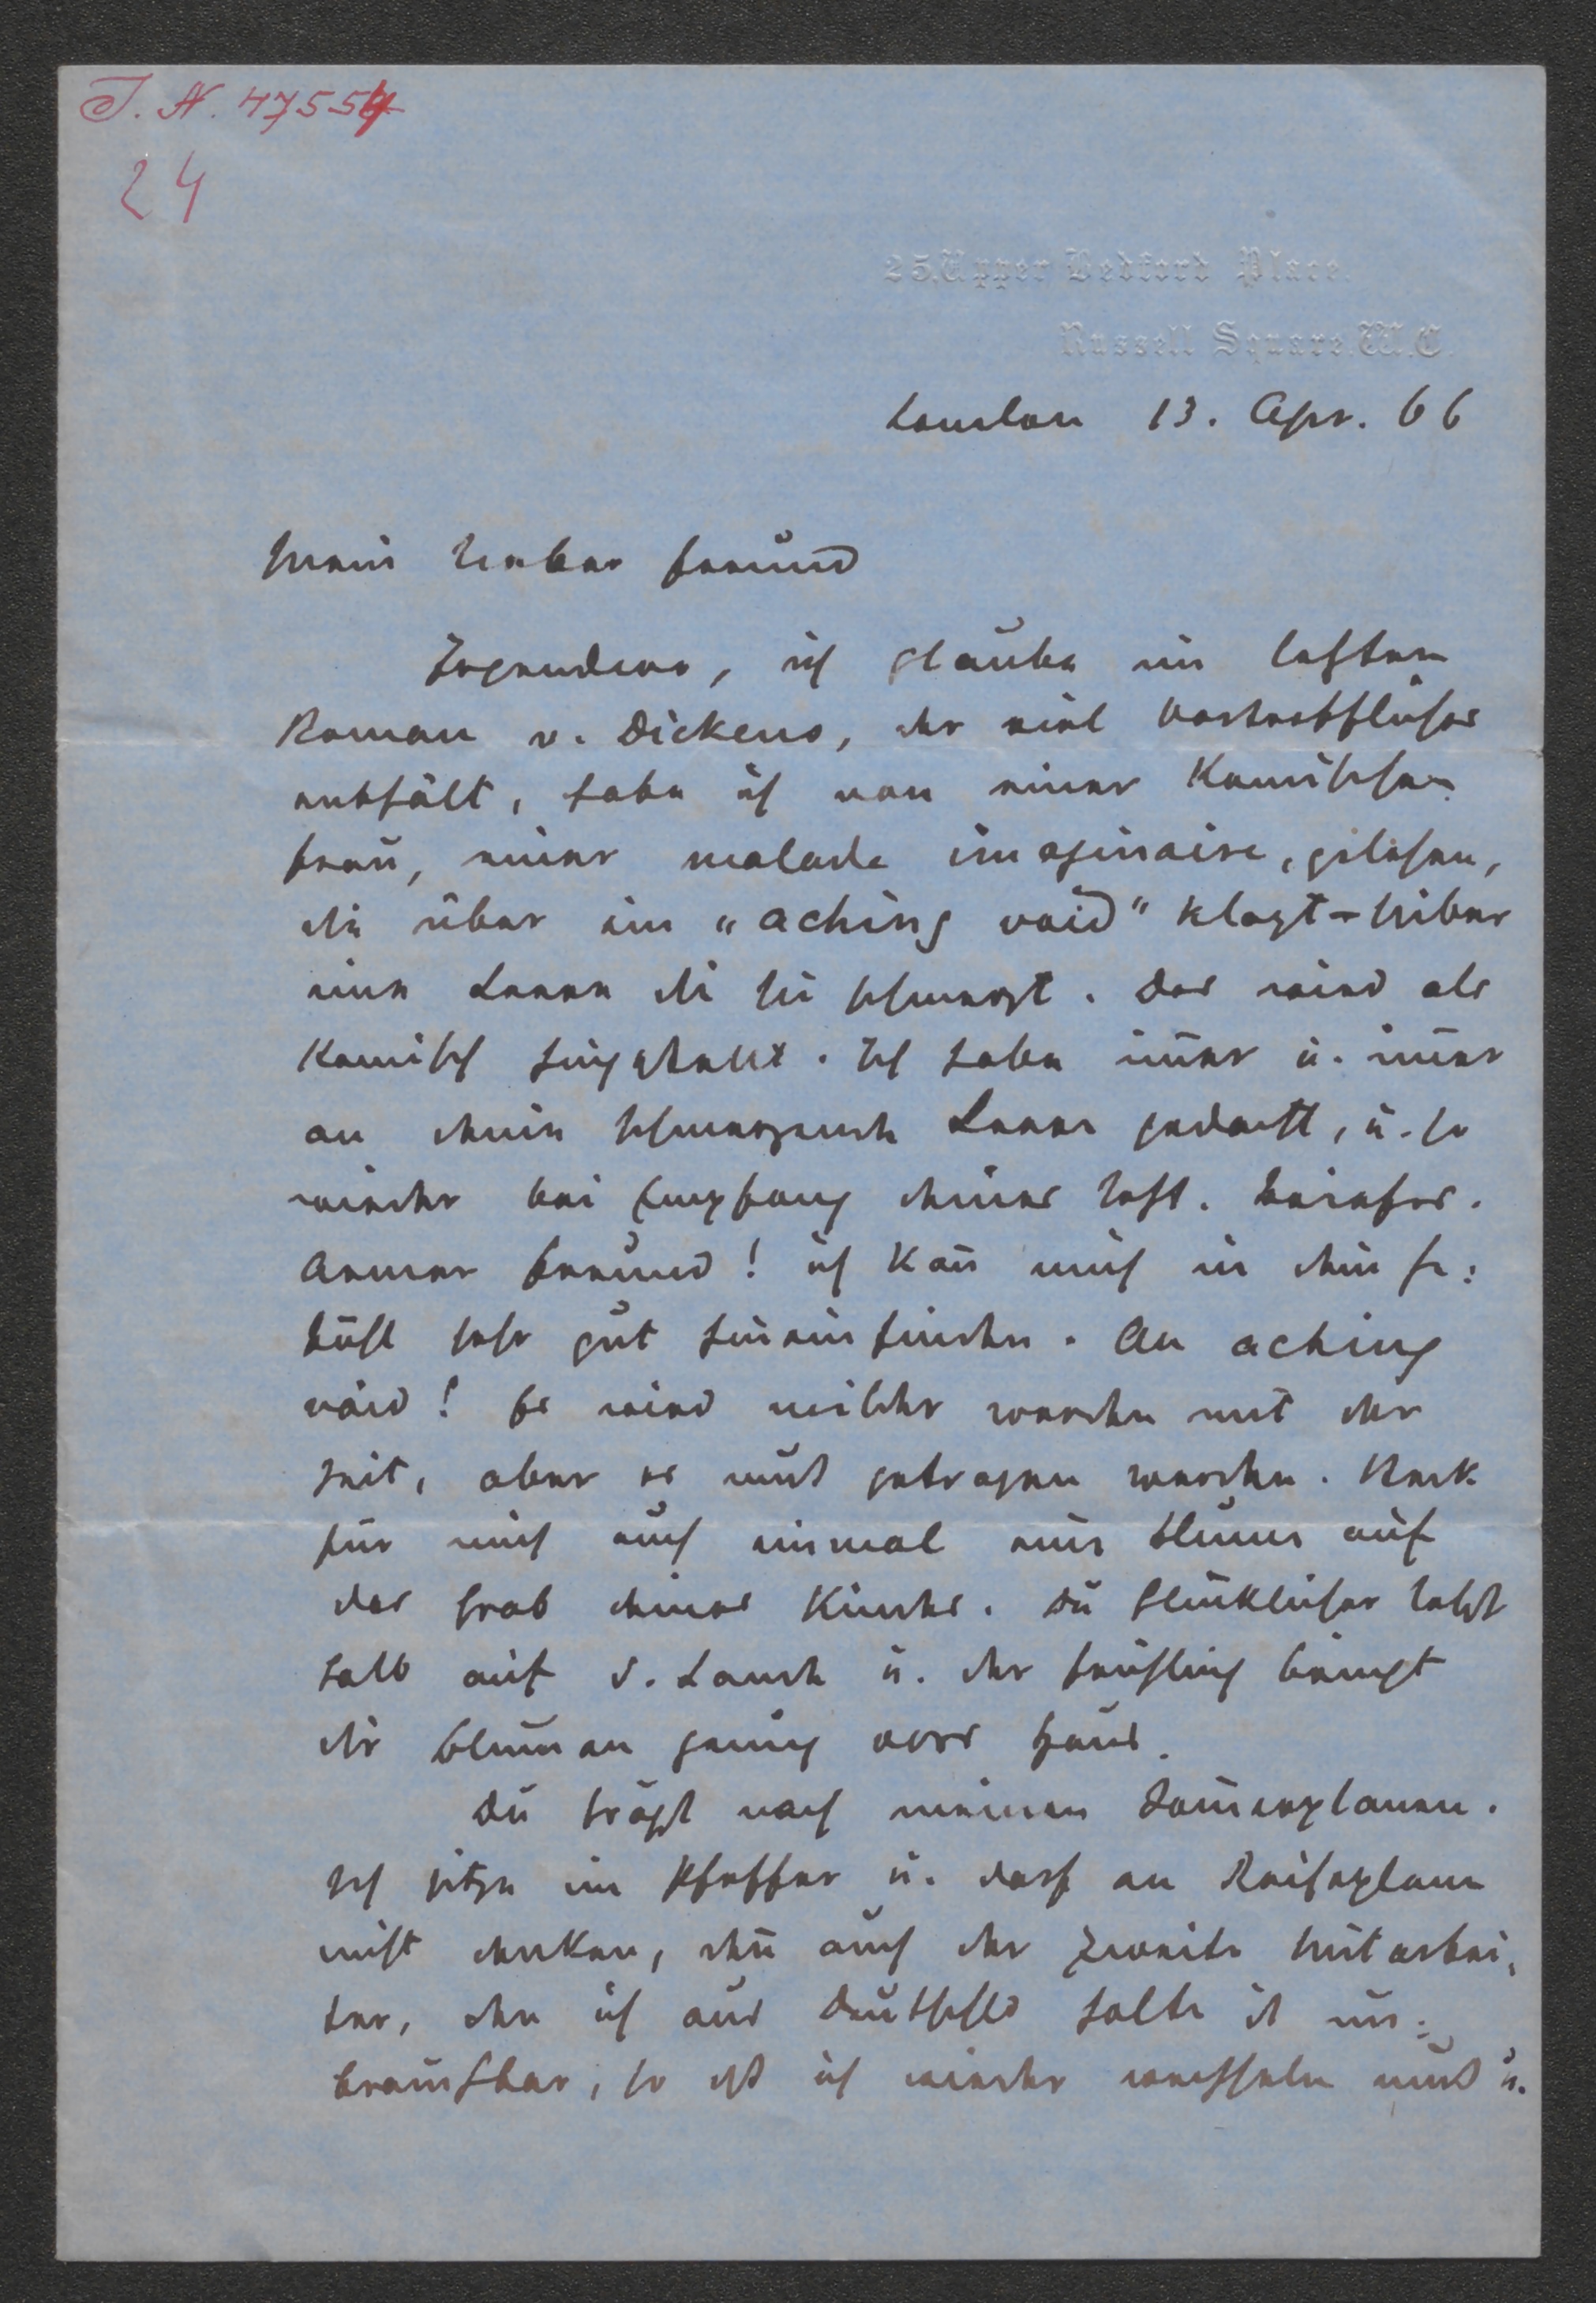 I. N. 47554
24
25, Upper Bedford Place.
Russell Square. W.C.
London 13. Apr. 66
Mein lieber Freund
Irgendwo, ich glaube im letzten
Roman v. Dickens, der viel Vortreffliches
enthält, habe ich von einer komischen
Frau, einer malade imaginaire, gelesen,
die über ein „aching void" klagt – über
eine Leere die sie schmerzt. Das wird als
komisch hingestellt. Ich habe im̄er u. im̄er
an deine schmerzende Leere gedacht, u. so
wieder bei Empfang deines letzt. Briefes.
Armer Freund! ich kan̄ mich in dein Ge:
fühl sehr gut hineinfinden. An aching
void! Es wird milder werden mit der
Zeit, aber es muß getragen werden. Steck
für mich auch einmal eine Blume auf
das Grab deines Kindes. Du Glücklicher lebst
halb auf d. Lande u. der Frühling bringt
dir Blumen genug vors Haus.
Du frägst nach meinen Som̄erplanen.
Ich sitze im Pfeffer u. darf an Reiseplane
nicht denken, den̄ auch der zweite Mitarbei,
ter, den ich aus Deutschld holte ist un:
brauchbar, so dß ich wieder wechseln muß u.